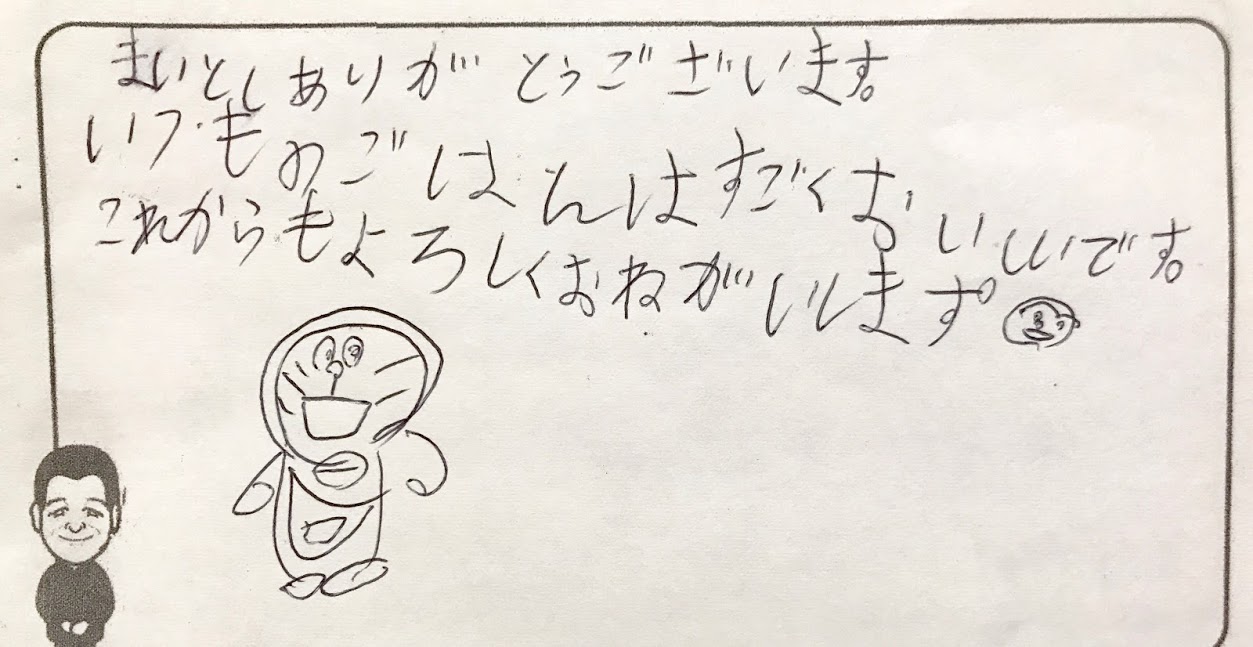 まいとしありがとうございます。
いつものごはんはすごくおいしいです。
これからもよろしくおねがいします。